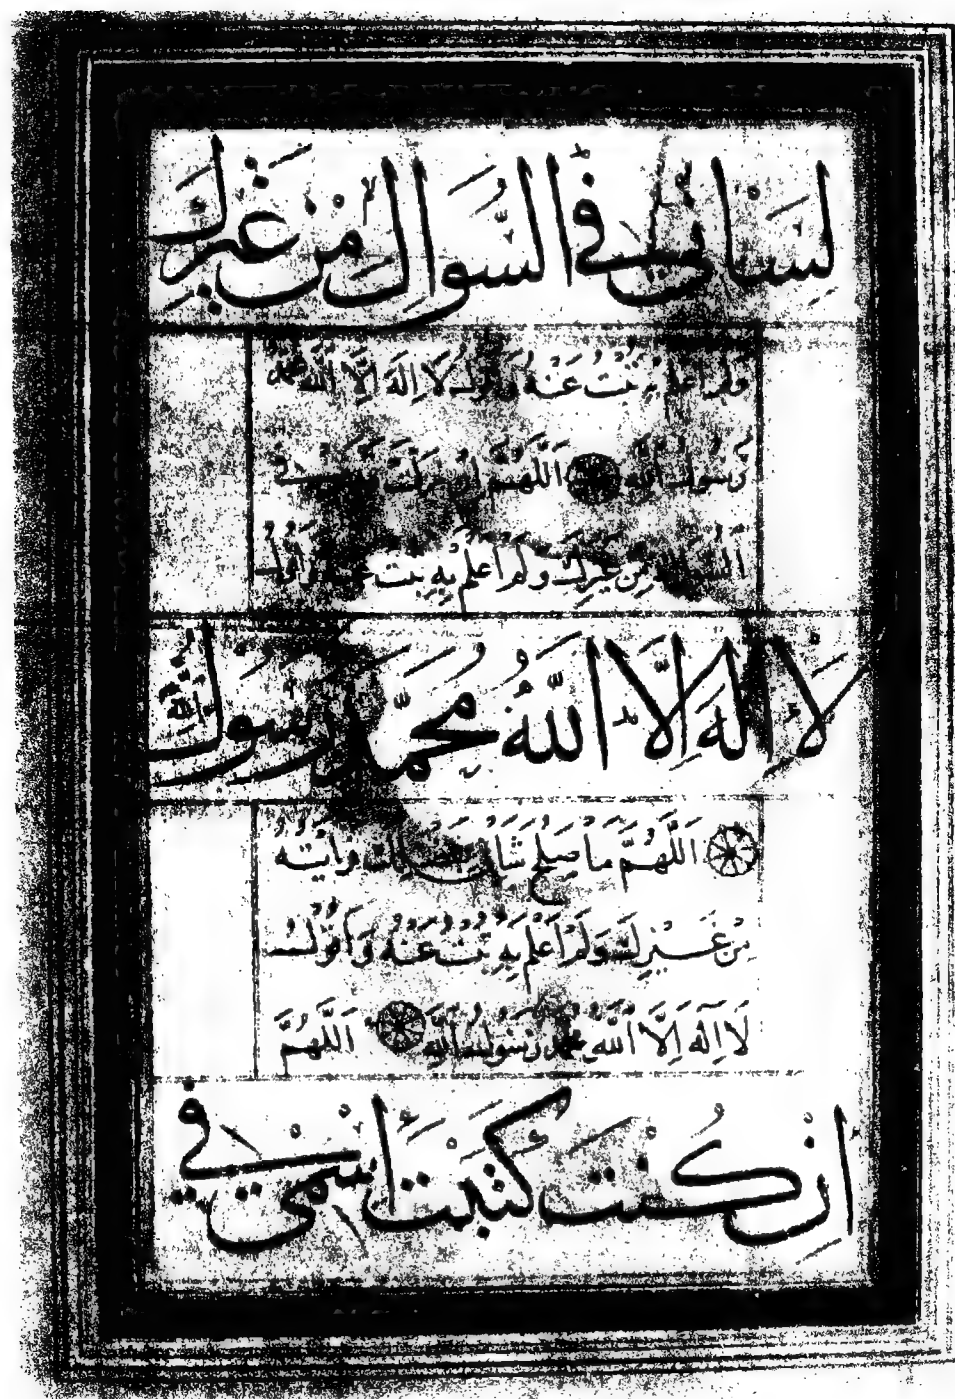 لِسَانِي فِي السُّوَالِ مِنْ غَيْرِكَ
وَلَمْ اَعْلَمْ بِهِ تُبْتُ عَنْهُ وَاَقُولُ لَا اِلَهَ اِلَّا اللَّهُ مُحَمَّدٌ
رَسُولُ اللَّهِ اَللَّهُمَّ اِنْ فِي
السُّوَالِ مِنْ غَيْرِكَ وَلَمْ اَعْلَمْ بِهِ تُبْتُ عَنْهُ وَاَقُولُ
لَا اِلَهَ اِلَّا اللَّهُ مُحَمَّدٌ رَسُولُ اللَّهِ
اَللَّهُمَّ مَا صَلُحَ شَأْنِي وَرَاَيْتُهُ
مِنْ غَيْرِكَ وَلَمْ اَعْلَمْ بِهِ تُبْتُ عَنْهُ وَاَقُولُ
لَا اِلَهَ اِلَّا اللَّهُ مُحَمَّدٌ رَسُولُ اللَّهِ اَللَّهُمَّ
اِنْ كُنْتَ كَتَبْتَ اسْمِي فِي